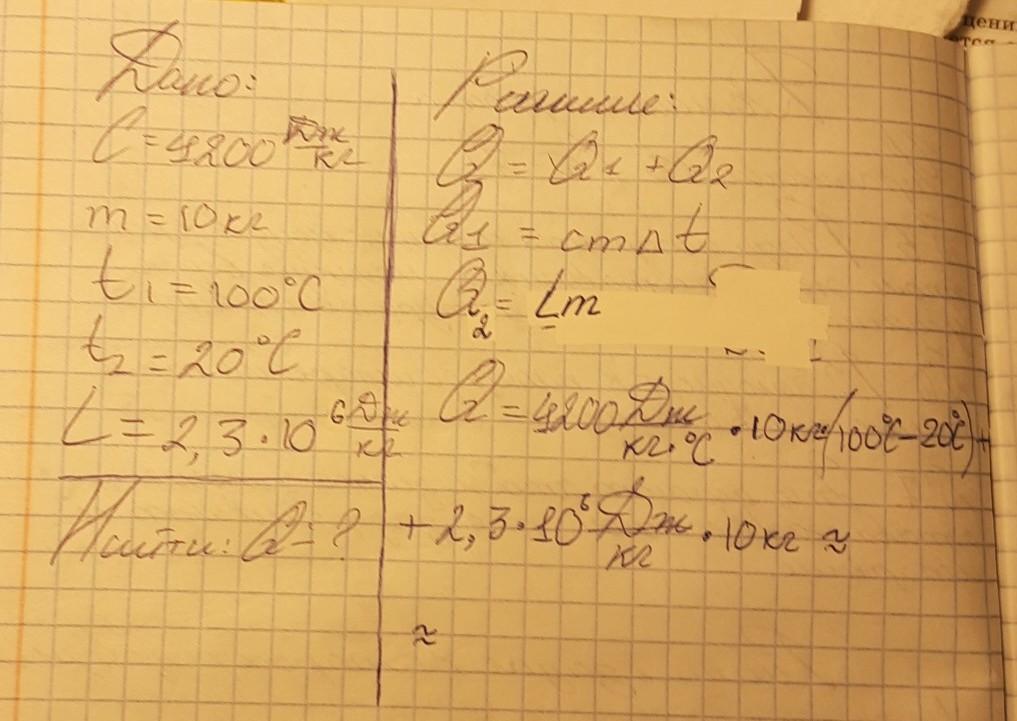 Дано:
C = 4200 Дж/кг
m = 10 кг
t₁ = 100°C
t₂ = 20°C
L = 2,3 · 10⁶ Дж/кг
Найти: Q - ?
Решение:
Q = Q₁ + Q₂
Q₁ = cm∆t
Q₂ = Lm
Q = 4200 Дж/кг·°C · 10 кг · (100°C - 20°C) +
+ 2,3 · 10⁶ Дж/кг · 10 кг ≈
≈